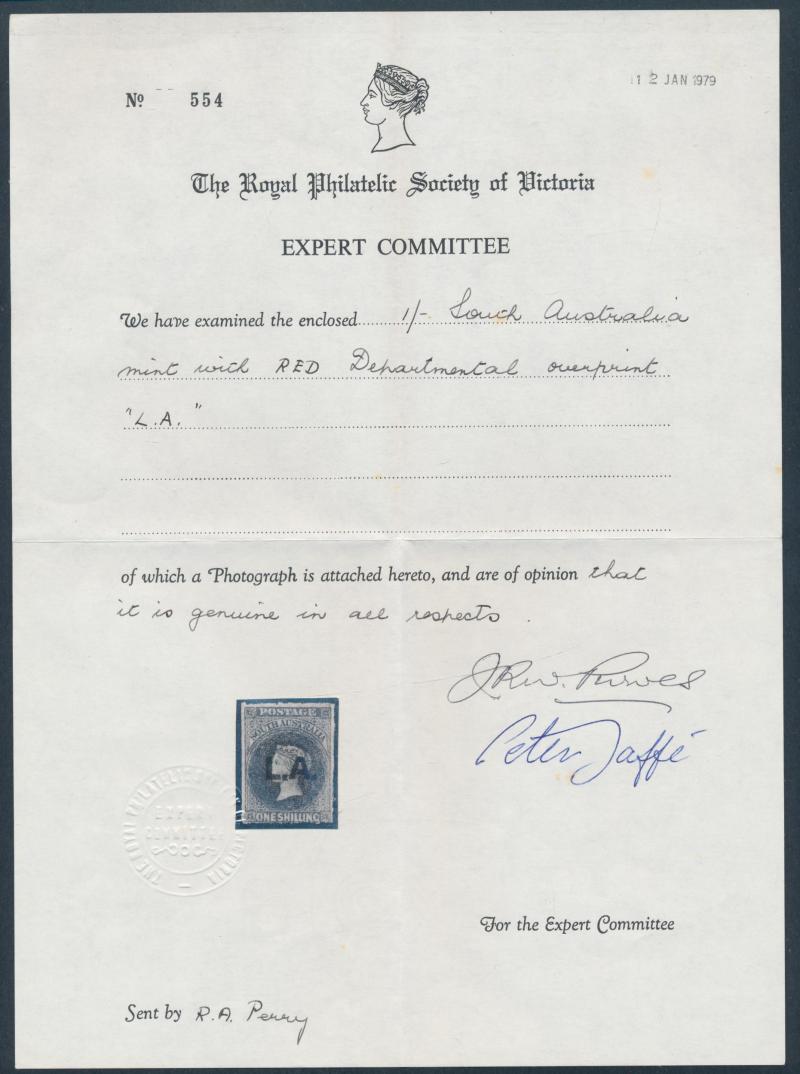 No 554
12 JAN 1979
The Royal Philatelic Society of Victoria
EXPERT COMMITTEE
We have examined the enclosed 1/- South Australia
mint with RED Departmental overprint
"L.A."
of which a Photograph is attached hereto, and are of opinion that
it is genuine in all respects.
J R W. Purves
Peter Jaffé
POSTAGE
SOUTH AUSTRALIA
L.A.
ONE SHILLING
THE ROYAL PHILATELIC SOCIETY OF VICTORIA
EXPERT
COMMITTEE
For the Expert Committee
Sent by R.A. Perry